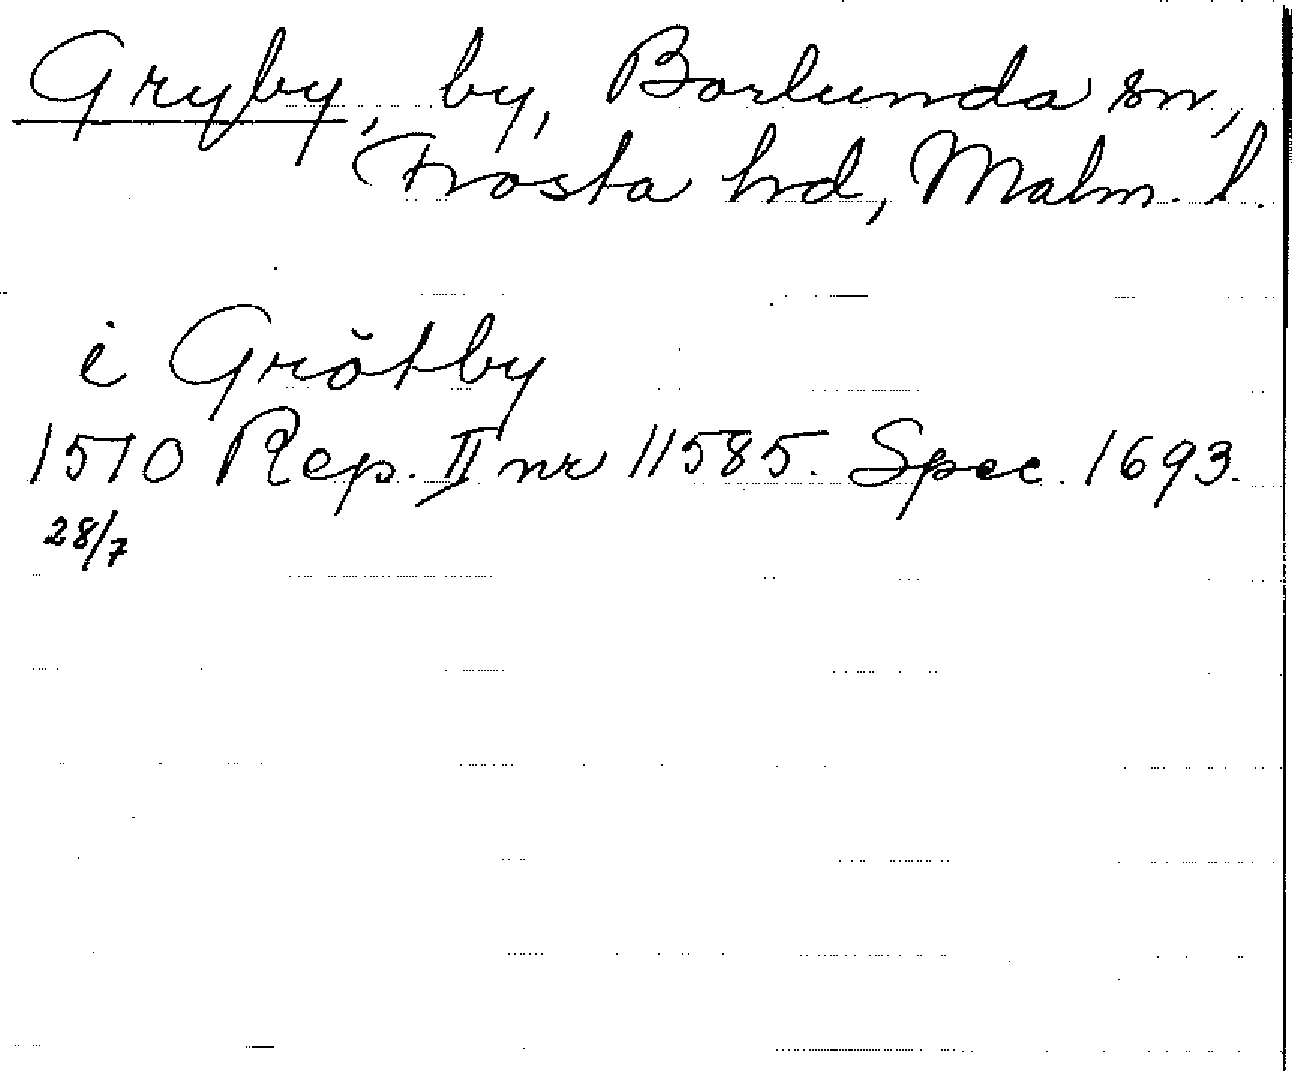 Gryby, by, Borlunda sn,
Frosta hd, Malm. l.
i Grötby
1510 Rep. II nr 11585. Spec. 1693.
28/7